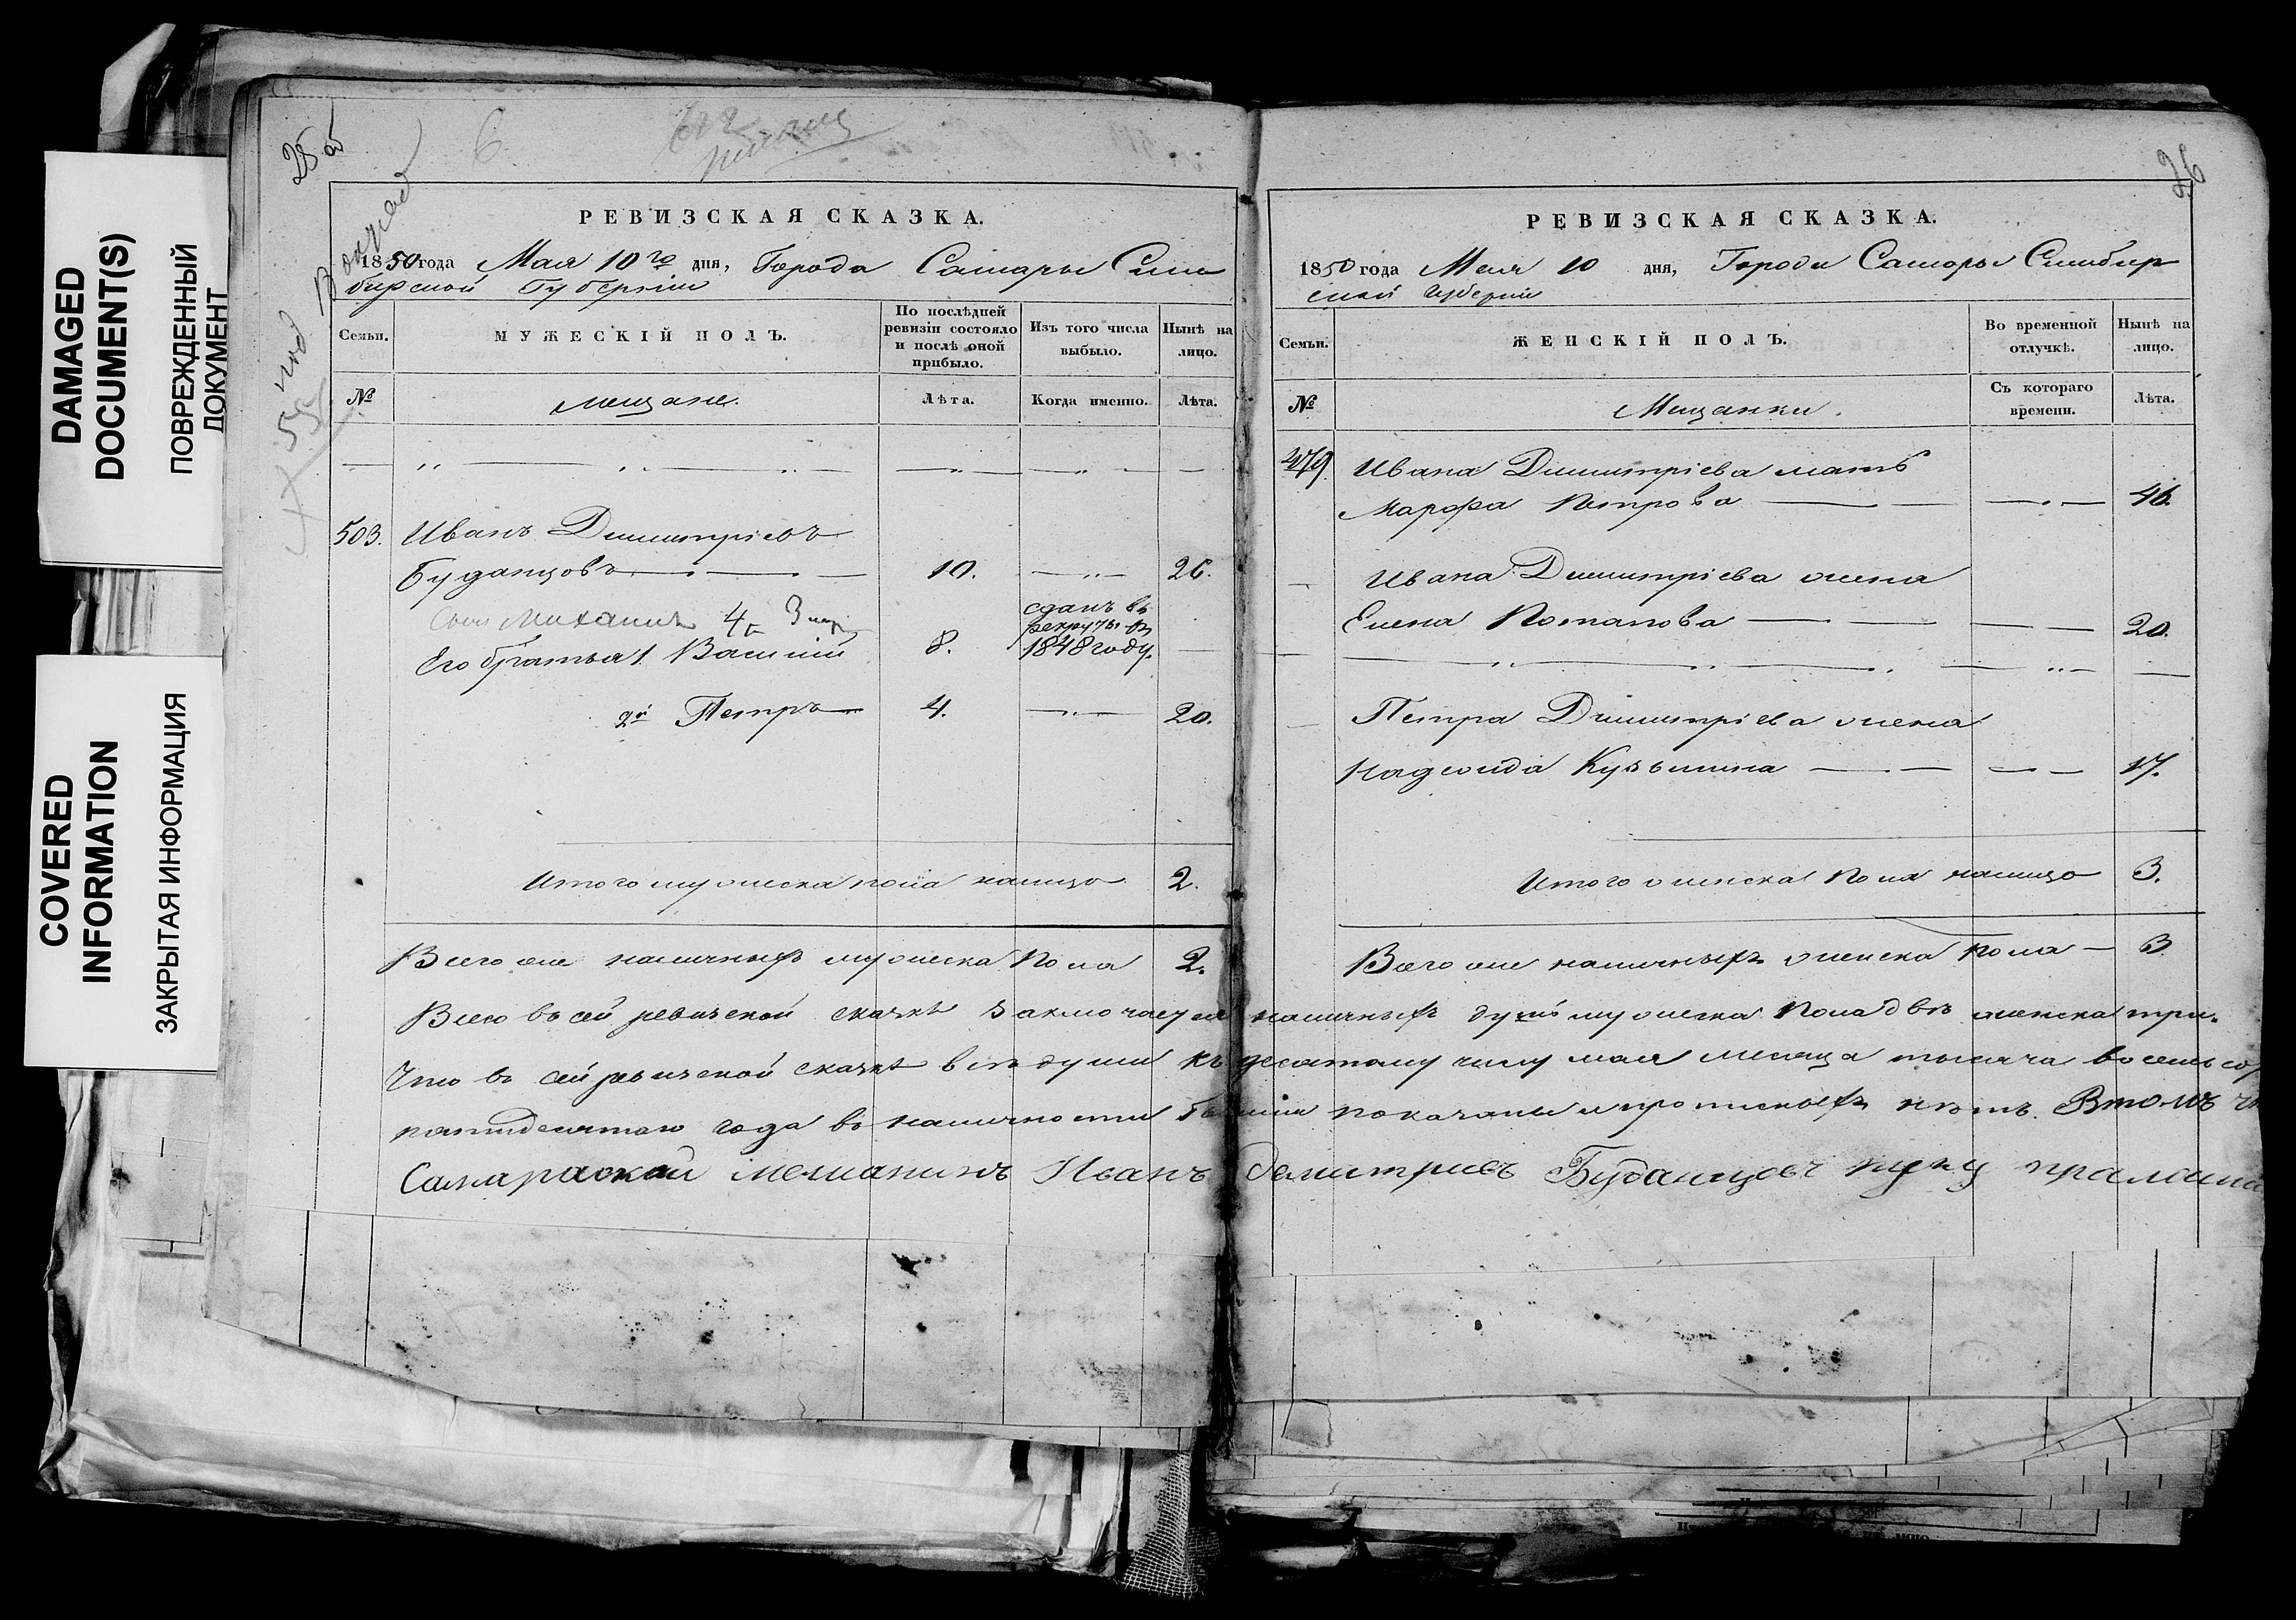 DAMAGED
DOCUMENT(S)
ПОВРЕЖДЕННЫЙ
ДОКУМЕНТ
COVERED
INFORMATION
ЗАКРЫТАЯ ИНФОРМАЦИЯ
25 об
6
РЕВИЗСКАЯ СКАЗКА.
1850 года Мая 10го дня, Города Самары Сим
бирской Губерніи
Семьи.
МУЖЕСКІЙ ПОЛЪ.
По послѣдней
ревизіи состояло
и послѣ оной
прибыло.
Изъ того числа
выбыло.
Нынѣ на
лицо.
№
мещане.
Лѣта.
Когда именно.
Лѣта.
503. Иванъ Димитріевъ
Буданцовъ 10. 26.
Михаилъ 4
сданъ въ
рекруты въ
Его братья 1. Василій 8. 1848 году.
2й Петръ 4. 20.
Итого мужеска пола налицо 2.
Всего же наличныхъ мужеска пола 2.
26
РЕВИЗСКАЯ СКАЗКА.
1850 года Мая 10 дня, Города Самары Симбир
ской Губерніи
Семьи.
ЖЕНСКІЙ ПОЛЪ.
Во временной
отлучкѣ.
Нынѣ на
лицо.
№
Мещанки.
Съ котораго
времени.
Лѣта.
479. Ивана Димитріева мать
Марфа Петрова 46.
Ивана Димитріева жена
Елена Потапова 20.
Петра Димитріева жена
Надежда Кузьмина 17.
Итого женска пола налицо 3.
Всего же наличныхъ женска пола 3
Всего въ сей ревизской сказкѣ заключается наличныхъ душъ мужеска пола двѣ женска три.
Что въ сей ревизской сказкѣ всѣ души къ десятому числу мая месяца тысяча восемьсо
пятидесятаго года въ наличности показаны и прописныхъ нѣтъ. Втомъ
Самараской мешанинъ Иванъ Демитриевъ Буданцовъ руку